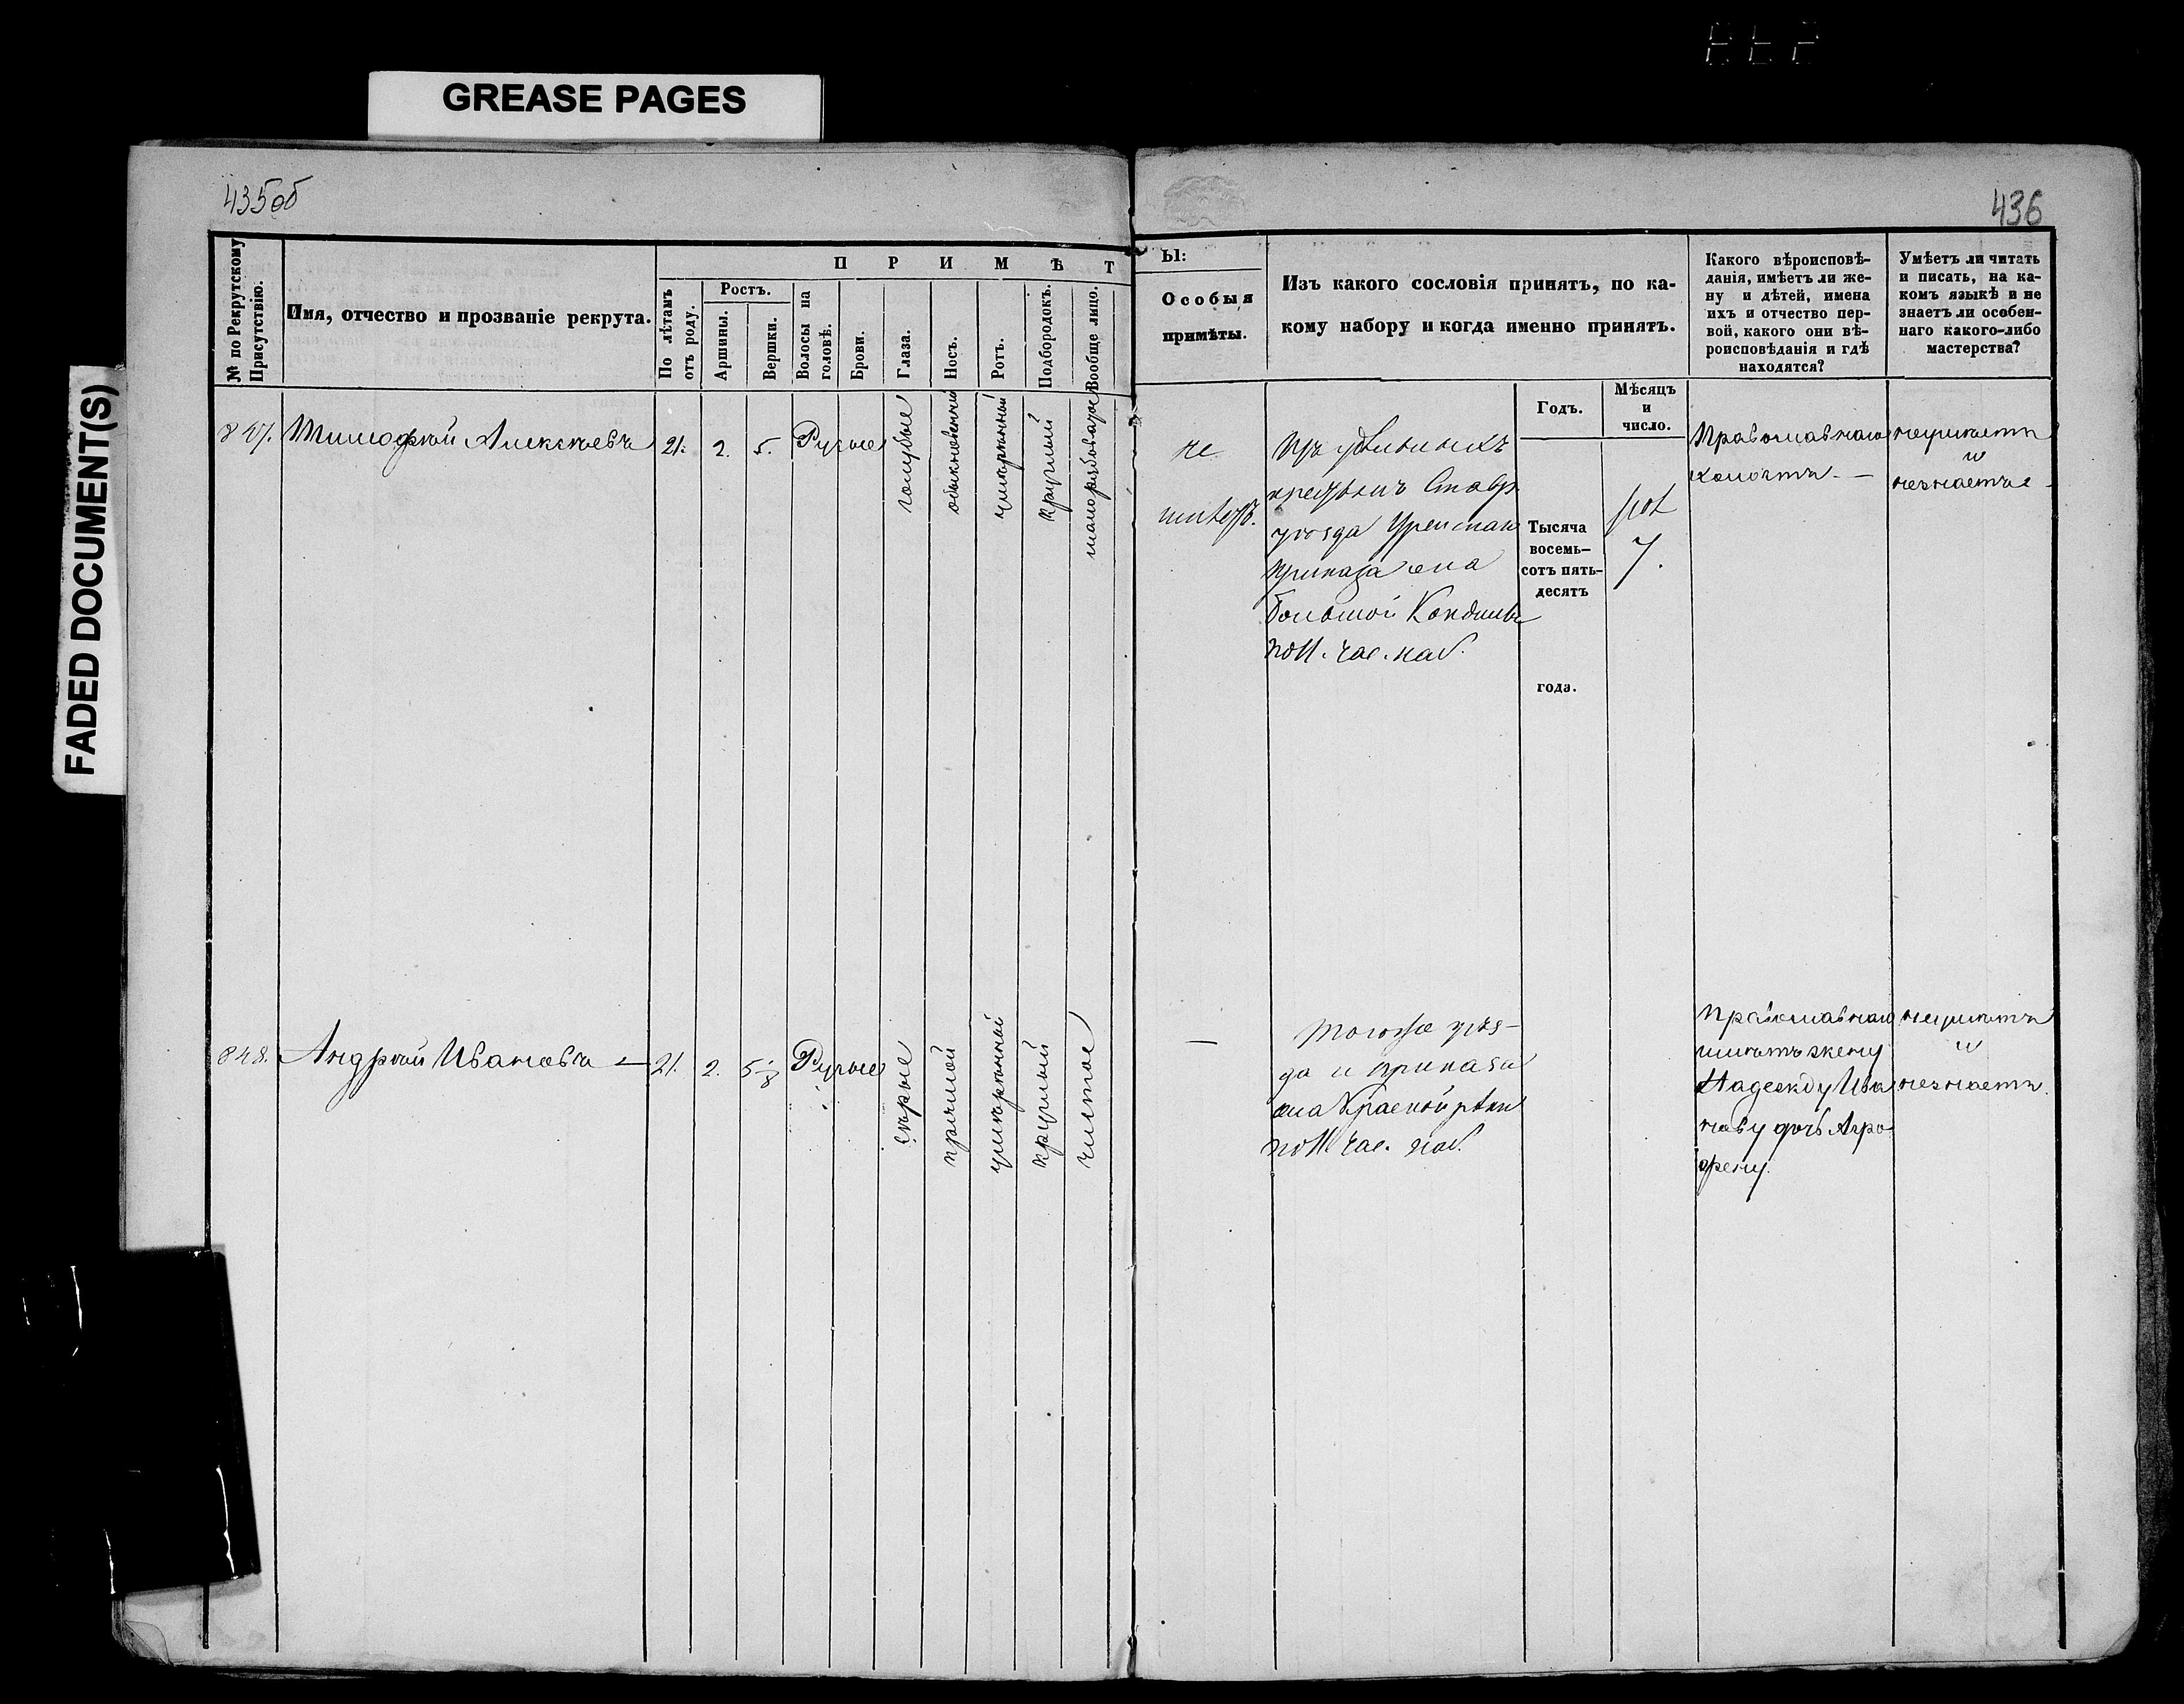 GREASE PAGES
FADED DOCUMENT(S)
435об
436
№ по Рекрутскому
Присутствію.
Имя, отчество и прозваніе рекрута.
П Р И М Ѣ Т
Ы:
По лѣтамъ
отъ роду.
Ростъ.
Аршины.
Вершки.
Волосы на
головѣ.
Брови.
Глаза.
Носъ.
Ротъ.
Подбородокъ.
Вообще лицо.
Особыя
примѣты.
Изъ какого сословія принятъ, по ка-
кому набору и когда именно принятъ.
Годъ.
Мѣсяцъ
и
число.
Какого вѣроисповѣ-
данія, имѣетъ ли же-
ну и дѣтей, имена
ихъ и отчество пер-
вой, какого они вѣ-
роисповѣданія и гдѣ
находятся?
Умѣетъ ли читать
и писать, на ка-
комъ языкѣ и не
знаетъ ли особен-
наго какого-либо
мастерства?
847.
Тимофей Алексѣевъ
21.
2.
5.
Русые
голубые
обыкновенный
умѣренный
круглый
мало рябоватое
не
имѣетъ.
Изъ удѣльныхъ
крестьянъ Ставр.
уѣзда
Приказа села
Большой Кандалы
по 11. час. наб.
Тысяча
восемь-
сотъ пять-
десятъ
года.
7.
Православнаго
холостъ. —
неумѣетъ
и
незнаетъ
848.
Андрей Ивановъ —
21.
2.
5 1/8
Русые
сѣрые
прямой
умѣренный
круглый
чистое
—
Тогоже уѣз-
да и приказа
села Красной рѣки
по 11 час. наб.
Православнаго
имѣетъ жену
Надежду Ива
нову дочь Агра
фену.
неумѣетъ
и
незнаетъ.